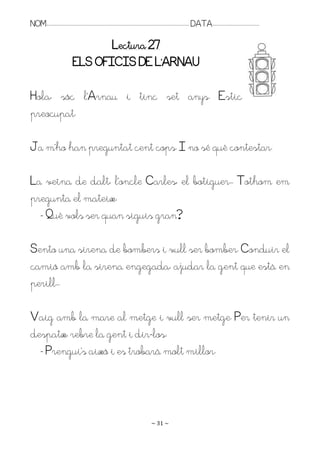 NOM............................................................DATA....................
Lectura 27
ELS OFICIS DE L'ARNAU
Hola sóc l'Arnau i tinc set anys. Estic
preocupat.
Ja m'ho han preguntat cent cops. I no sé què contestar.
La veïna de dalt, l'oncle Carles, el botiguer... Tothom em
pregunta el mateix:
- Què vols ser quan siguis gran?
Sento una sirena de bombers i vull ser bomber. Conduir el
camió amb la sirena engegada, ajudar la gent que està en
perill...
Vaig amb la mare al metge i vull ser metge. Per tenir un
despatx, rebre la gent i dir-los:
- Prengui's això i es trobarà molt millor.
~ 31 ~